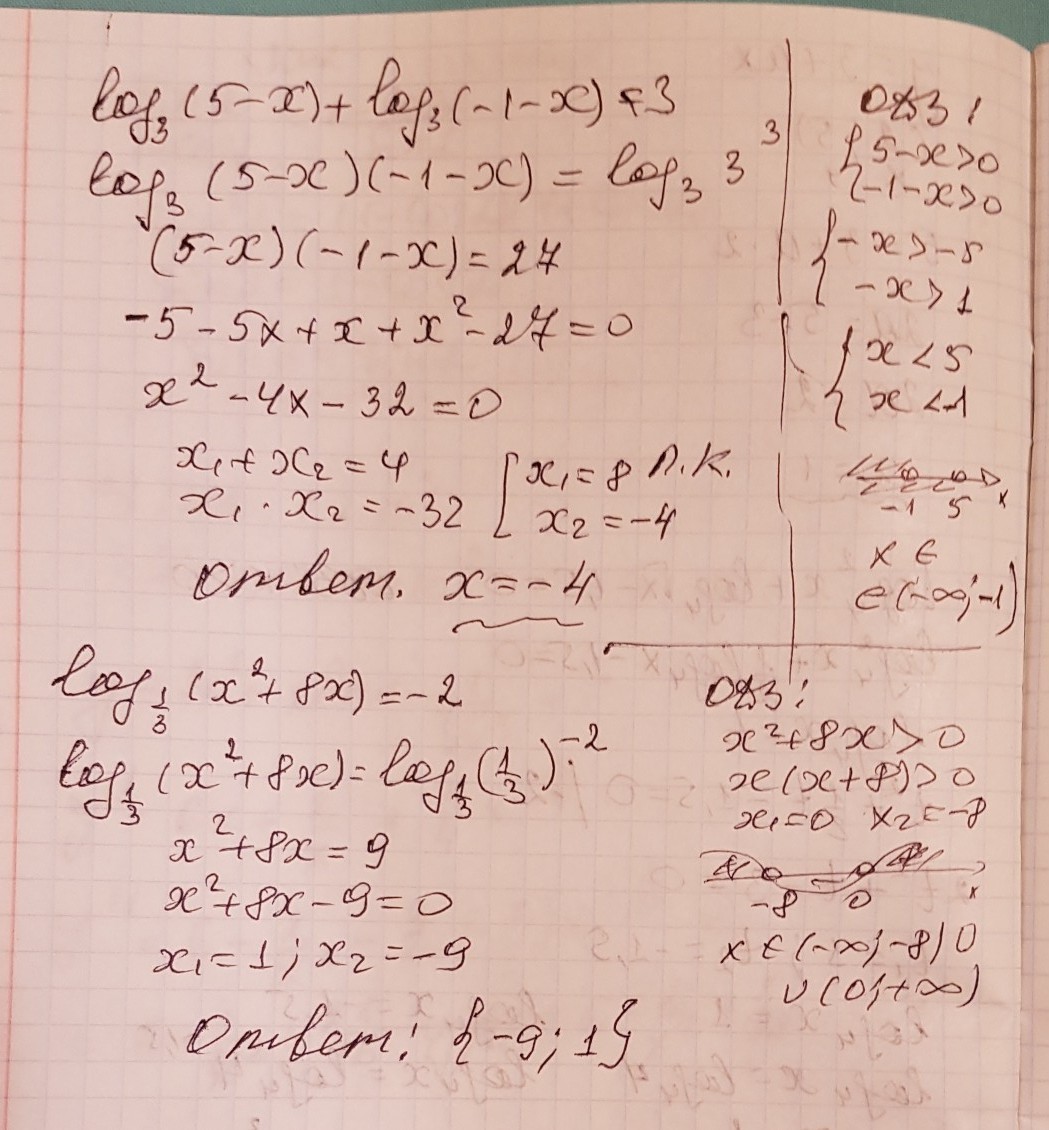 log₃(5-x)+log₃(-1-x)=3
log₃(5-x)(-1-x)=log₃3³
(5-x)(-1-x)=27
-5-5x+x+x²-27=0
x²-4x-32=0
x₁+x₂=4
x₁·x₂=-32
[x₁=8 п.к.
x₂=-4
Ответ. x=-4
ОДЗ:
{5-x>0
{-1-x>0
{-x>-5
-x>1
{x<5
x<-1
-1 5 x
x ∈
∈(-∞;-1)
log₁/₃(x²+8x)=-2
log₁/₃(x²+8x)=log₁/₃(1/3)⁻²
x²+8x=9
x²+8x-9=0
x₁=1; x₂=-9
Ответ: {-9;1}
ОДЗ:
x²+8x>0
x(x+8)>0
x₁=0 x₂=-8
-8 0 x
x∈(-∞;-8)∪
∪(0;+∞)